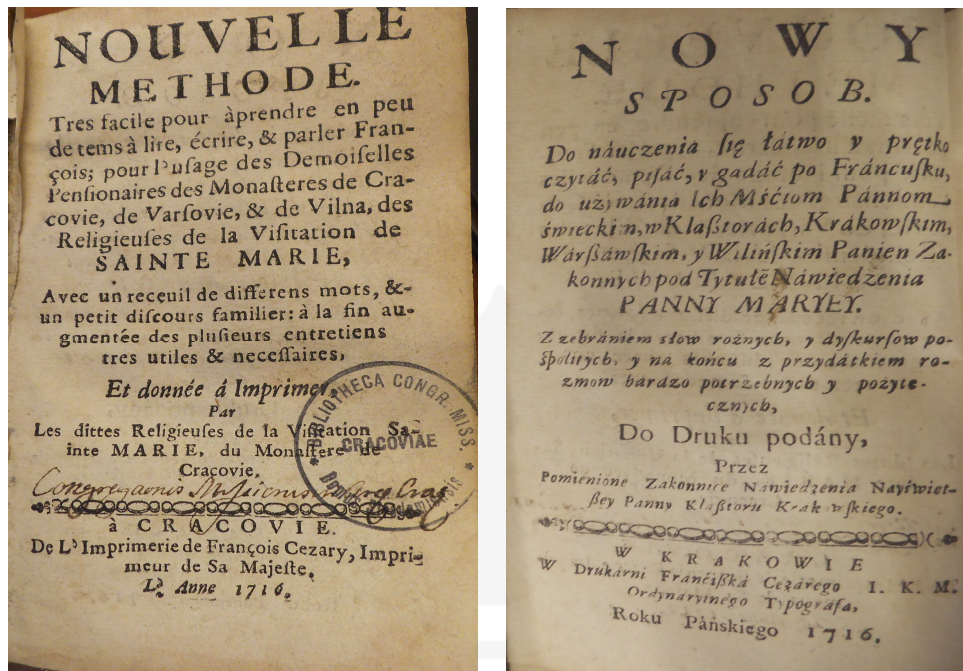 NOUVELLE
METHODE.
Tres facile pour àprendre en peu
de tems à lire, écrire, & parler Fran-
çois; pour l'uſage des Demoiſelles
Penſionaires des Monaſteres de Cra-
covie, de Varſovie, & de Vilna, des
Religieuſes de la Viſitation de
SAINTE MARIE,
Avec un receuil de differens mots, &-
un petit diſcours familier: à la fin au-
gmentée des pluſieurs entretiens
tres utiles & neceſſaires,
Et donnée á Imprimer,
Par
Les dittes Religieuſes de la Viſitation Sa-
inte MARIE, du Monaſtere de
Cracovie,
Congregaonis
à CRACOVIE.
De L' Imprimerie de François Cezary, Impri-
meur de Sa Majeſte,
L' Anne 1716,
BIBLIOTHECA CONGR. MISS.
CRACOVIAE
NOWY
SPOSOB.
Do náuczenia ſię łátwo y prętko
czytáć, piſáć, y gadáć po Fráncuſku,
do używánia Ich Mśćiom Pánnom
świeckim, w Klaßtorách, Krákowſkim,
Wárßáwſkim, y Wilińſkim Panien Za-
konnych pod Tytułẽ Náwiedzenia
PANNY MARYEY.
Z zebrániem słow rożnych, y dyſkurſow po-
ſpolitych, y na końcu z przydátkiem ro-
zmow bárdzo potrzebnych y pożyte-
cznych,
Do Druku podány,
Przez
Pomienione Zakonnice Náwiedzenia Nayświet-
ßey Panny Klaßtoru Krakowſkiego.
W KRAKOWIE
W Drukárni Fránćißká Cezárego I. K. M.
Ordynaryinego Typográfa,
Roku Páńskiego 1716.